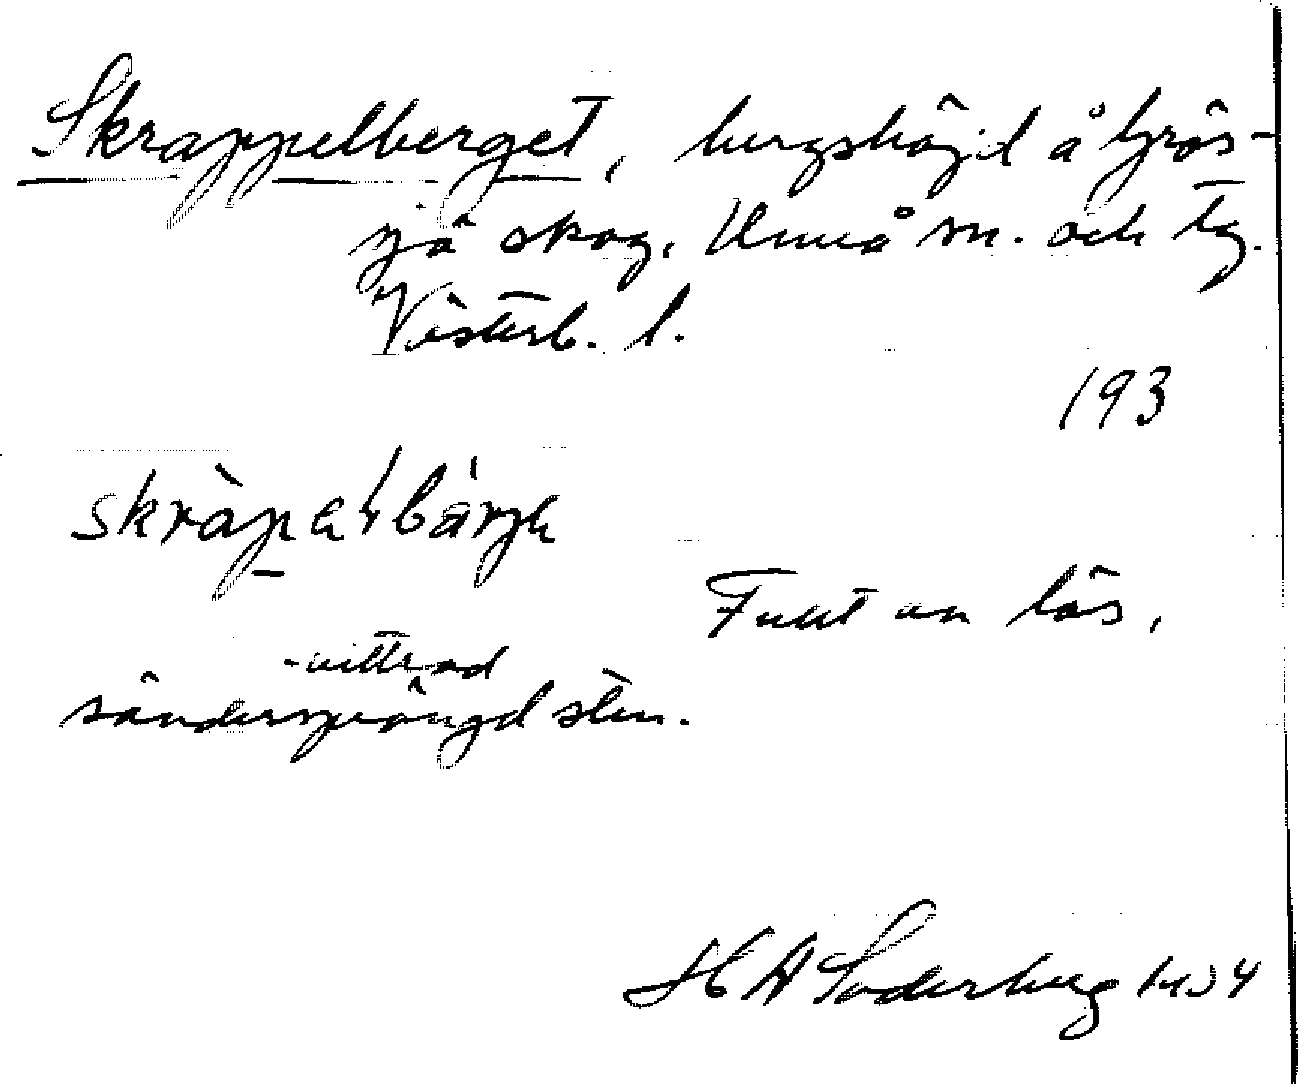 Skrappelberget, bergshöjd å Gräs-
sjö skog, Umeå sn. och tg.
Västerb. l.
193
skràpelbärje
Fullt av lös,
-vittrad
söndersprängd sten.
H A Söderberg